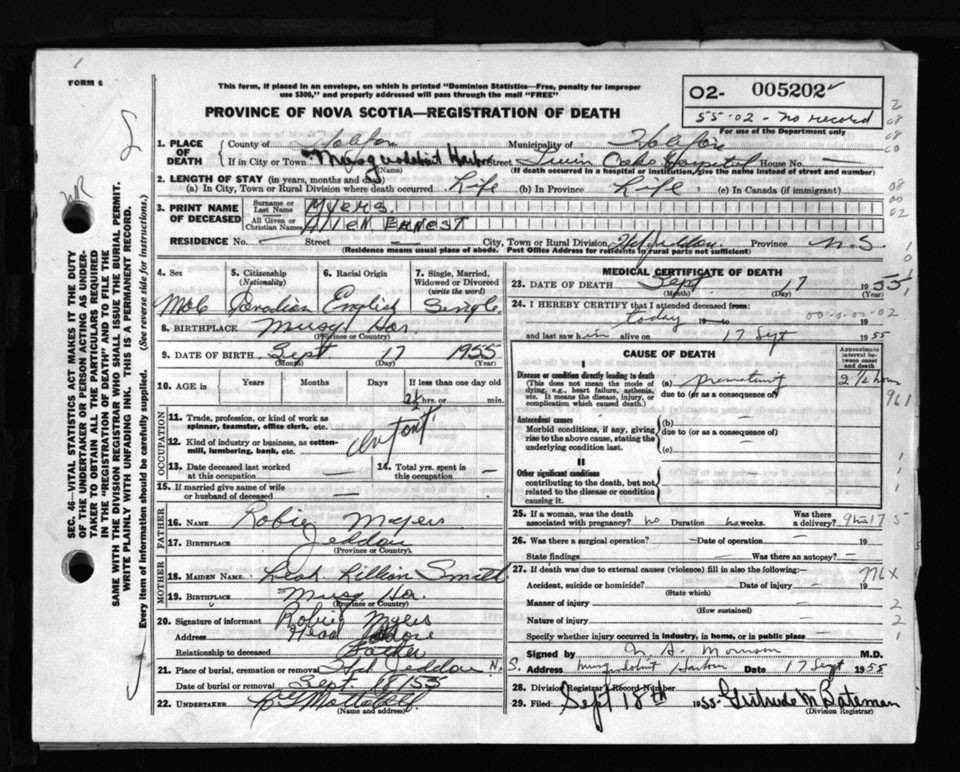 FORM 6
This form, if placed in an envelope, on which is printed "Dominion Statistics—Free, penalty for improper
use $300," and properly addressed will pass through the mail "FREE"
PROVINCE OF NOVA SCOTIA—REGISTRATION OF DEATH
O2- 005202
55-02 - no record
For use of the Department only
1. PLACE OF DEATH
County of Halifax Municipality of Halifax
If in City or Town Musquodoboit Harbour Street Twin Oaks Hospital House No. —
(Name) (If death occurred in a hospital or institution, give the name instead of street and number)
2. LENGTH OF STAY (in years, months and days)
(a) In City, Town or Rural Division where death occurred Life (b) In Province Life (c) In Canada (if immigrant)
3. PRINT NAME OF DECEASED
Surname or Last Name MYERS.
All Given or Christian Names ALLEN ERNEST
RESIDENCE No. — Street — City, Town or Rural Division Hd Jeddore Province N.S
(Residence means usual place of abode. Post Office Address for residents in rural parts not sufficient)
4. Sex
Male
5. Citizenship (Nationality)
Canadian
6. Racial Origin
English
7. Single, Married, Widowed or Divorced (write the word)
Single
8. BIRTHPLACE Musq Har.
(Province or Country)
9. DATE OF BIRTH Sept 17 1955
(Month) (Day) (Year)
10. AGE in Years Months Days If less than one day old
2½ hrs. or min.
OCCUPATION
11. Trade, profession, or kind of work as spinner, teamster, office clerk, etc.
Infant
12. Kind of industry or business, as cotton-mill, lumbering, bank, etc.
13. Date deceased last worked at this occupation —
14. Total yrs. spent in this occupation —
15. If married give name of wife or husband of deceased —
FATHER
16. NAME Robie Myers
17. BIRTHPLACE Jeddore
(Province or Country)
MOTHER
18. MAIDEN NAME Leah Lillian Smith
19. BIRTHPLACE Musq Har.
(Province or Country)
20. Signature of informant Robie Myers
Address Head Jeddore
Relationship to deceased Father
21. Place of burial, cremation or removal Hd Jeddore N.S.
Date of burial or removal Sept. 18/55
22. UNDERTAKER
(Name and address)
MEDICAL CERTIFICATE OF DEATH
23. DATE OF DEATH Sept 17 1955
(Month) (Day) (Year)
24. I HEREBY CERTIFY that I attended deceased from:
today to 19
and last saw him alive on 17 Sept 1955
CAUSE OF DEATH
Approximate interval between onset and death
I
Disease or condition directly leading to death
(This does not mean the mode of dying, e.g., heart failure, asthenia, etc. It means the disease, injury, or complication which caused death.)
(a) prematurity 2 ½ hours
due to (or as a consequence of)
Antecedent causes
Morbid conditions, if any, giving rise to the above cause, stating the underlying condition last.
(b) —
due to (or as a consequence of)
(c) —
II
Other significant conditions
contributing to the death, but not related to the disease or condition causing it.
25. If a woman, was the death associated with pregnancy? no Duration weeks. Was there a delivery?
26. Was there a surgical operation? — Date of operation — 19
State findings — Was there an autopsy? —
27. If death was due to external causes (violence) fill in also the following:—
Accident, suicide or homicide? Date of injury — 19
(State which)
Manner of injury —
(How sustained)
Nature of injury —
Specify whether injury occurred in industry, in home, or in public place —
Signed by Morrison M.D.
Address Musquodoboit Harbour Date 17 Sept 1955
28. Division Registrar's Record Number
29. Filed Sept 18th 1955 Gertrude M Bateman
(Division Registrar)
776X
SEC. 46—VITAL STATISTICS ACT MAKES IT THE DUTY
OF THE UNDERTAKER OR PERSON ACTING AS UNDER-
TAKER TO OBTAIN ALL THE PARTICULARS REQUIRED
IN THE "REGISTRATION OF DEATH" AND TO FILE THE
SAME WITH THE DIVISION REGISTRAR WHO SHALL ISSUE THE BURIAL PERMIT.
WRITE PLAINLY WITH UNFADING INK. THIS IS A PERMANENT RECORD.
Every item of information should be carefully supplied. (See reverse side for instructions.)